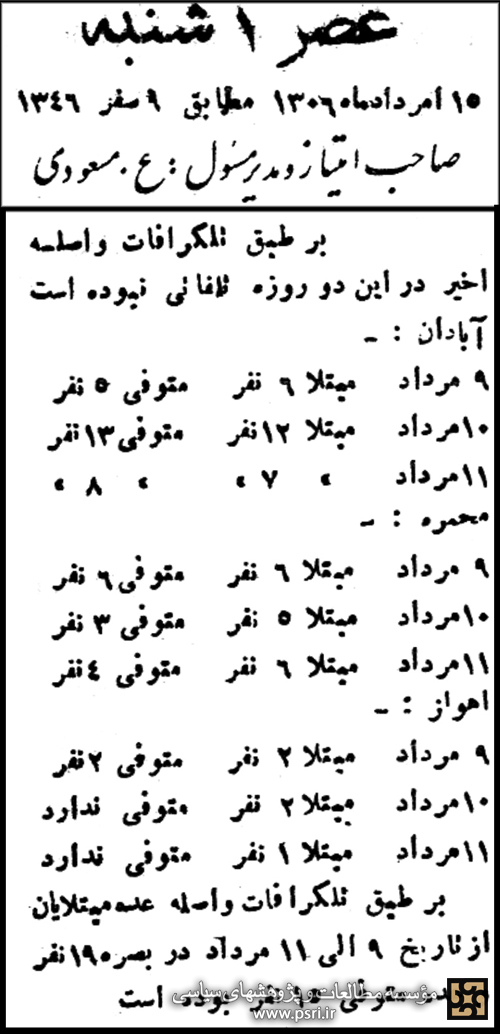 عصر ۱ شنبه
۱۵ امردادماه ۱۳۰۶ مطابق ۹ سفر ۱۳۴۶
صاحب امتیاز و مدیر مسئول : ع . مسعودی
بر طبق تلگرافات واصله
اخیر در این دو روزه تلفاتی نبوده است
آبادان : ـ
۹ مرداد مبتلا ۶ نفر متوفی ۵ نفر
۱۰مرداد مبتلا ۱۲نفر متوفی ۱۳نفر
۱۱مرداد » ۷ » » ۸ »
محمره : ـ
۹ مرداد مبتلا ۶ نفر متوفی ۶ نفر
۱۰مرداد مبتلا ۵ نفر متوفی ۳ نفر
۱۱مرداد مبتلا ۶ نفر متوفی ۴نفر
اهواز : ـ
۹ مرداد مبتلا ۲ نفر متوفی ۲نفر
۱۰مرداد مبتلا ۲ نفر متوفی ندارد
۱۱مرداد مبتلا ۱ نفر متوفی ندارد
بر طبق تلگرافات واصله عده مبتلایان
از تاریخ ۹ الی ۱۱ مرداد در بصره ۱۹نفر
نفر بوده است
مؤسسه مطالعات و پژوهشهای سیاسی
www.psri.ir